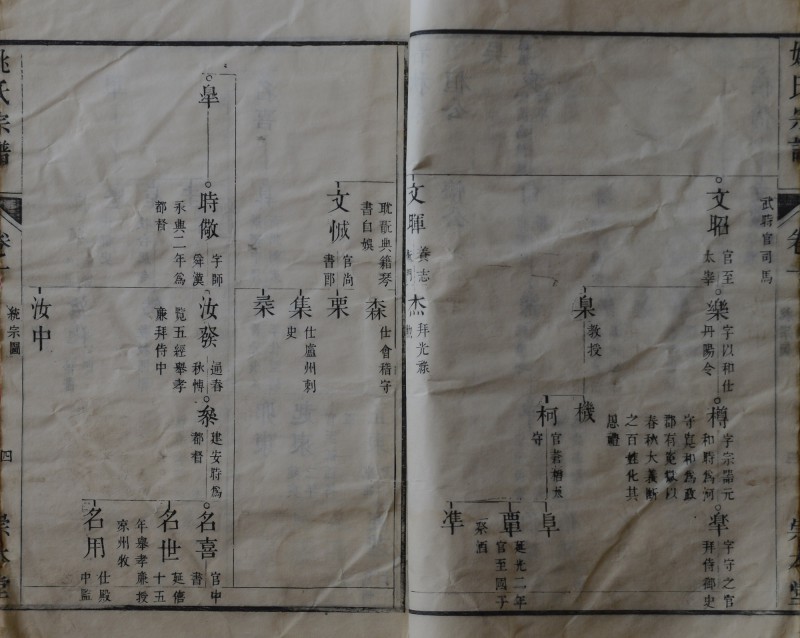 姚氏宗譜
卷一
崇本堂
武時官司馬
文昭
官至
太宰
樂
字以和仕
丹陽令
樽
字宗器元
和時為河
守寬和為政
郡有疑獄以
春秋大義斷
之百姓化其
恩禮
宰
字守之官
拜侍御史
臬
教授
機
柯
守
阜
覃
延光二年
官至國子
祭酒
準
文暉
養志
杰
拜光祿
耽翫典籍琴
書自娛
文誠
官尚
書郎
森
仕會稽守
栗
集
仕盧州刺
史
桑
皋
時儆
字師
舜漢
永興二年為
都督
汝發
通春
秋博
覧五經舉孝
廉拜侍中
粲
建安時為
都督
名喜
官中
書
名世
延僖
十五
年舉孝廉授
豕州牧
名用
仕殿
中監
汝中
姚氏宗譜
卷一
統宗圖
四
崇本堂